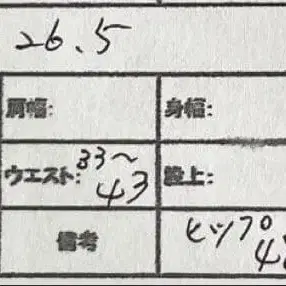 26.5
肩幅: 身幅:
ウエスト: 33〜43 股上:
備考 ヒップ